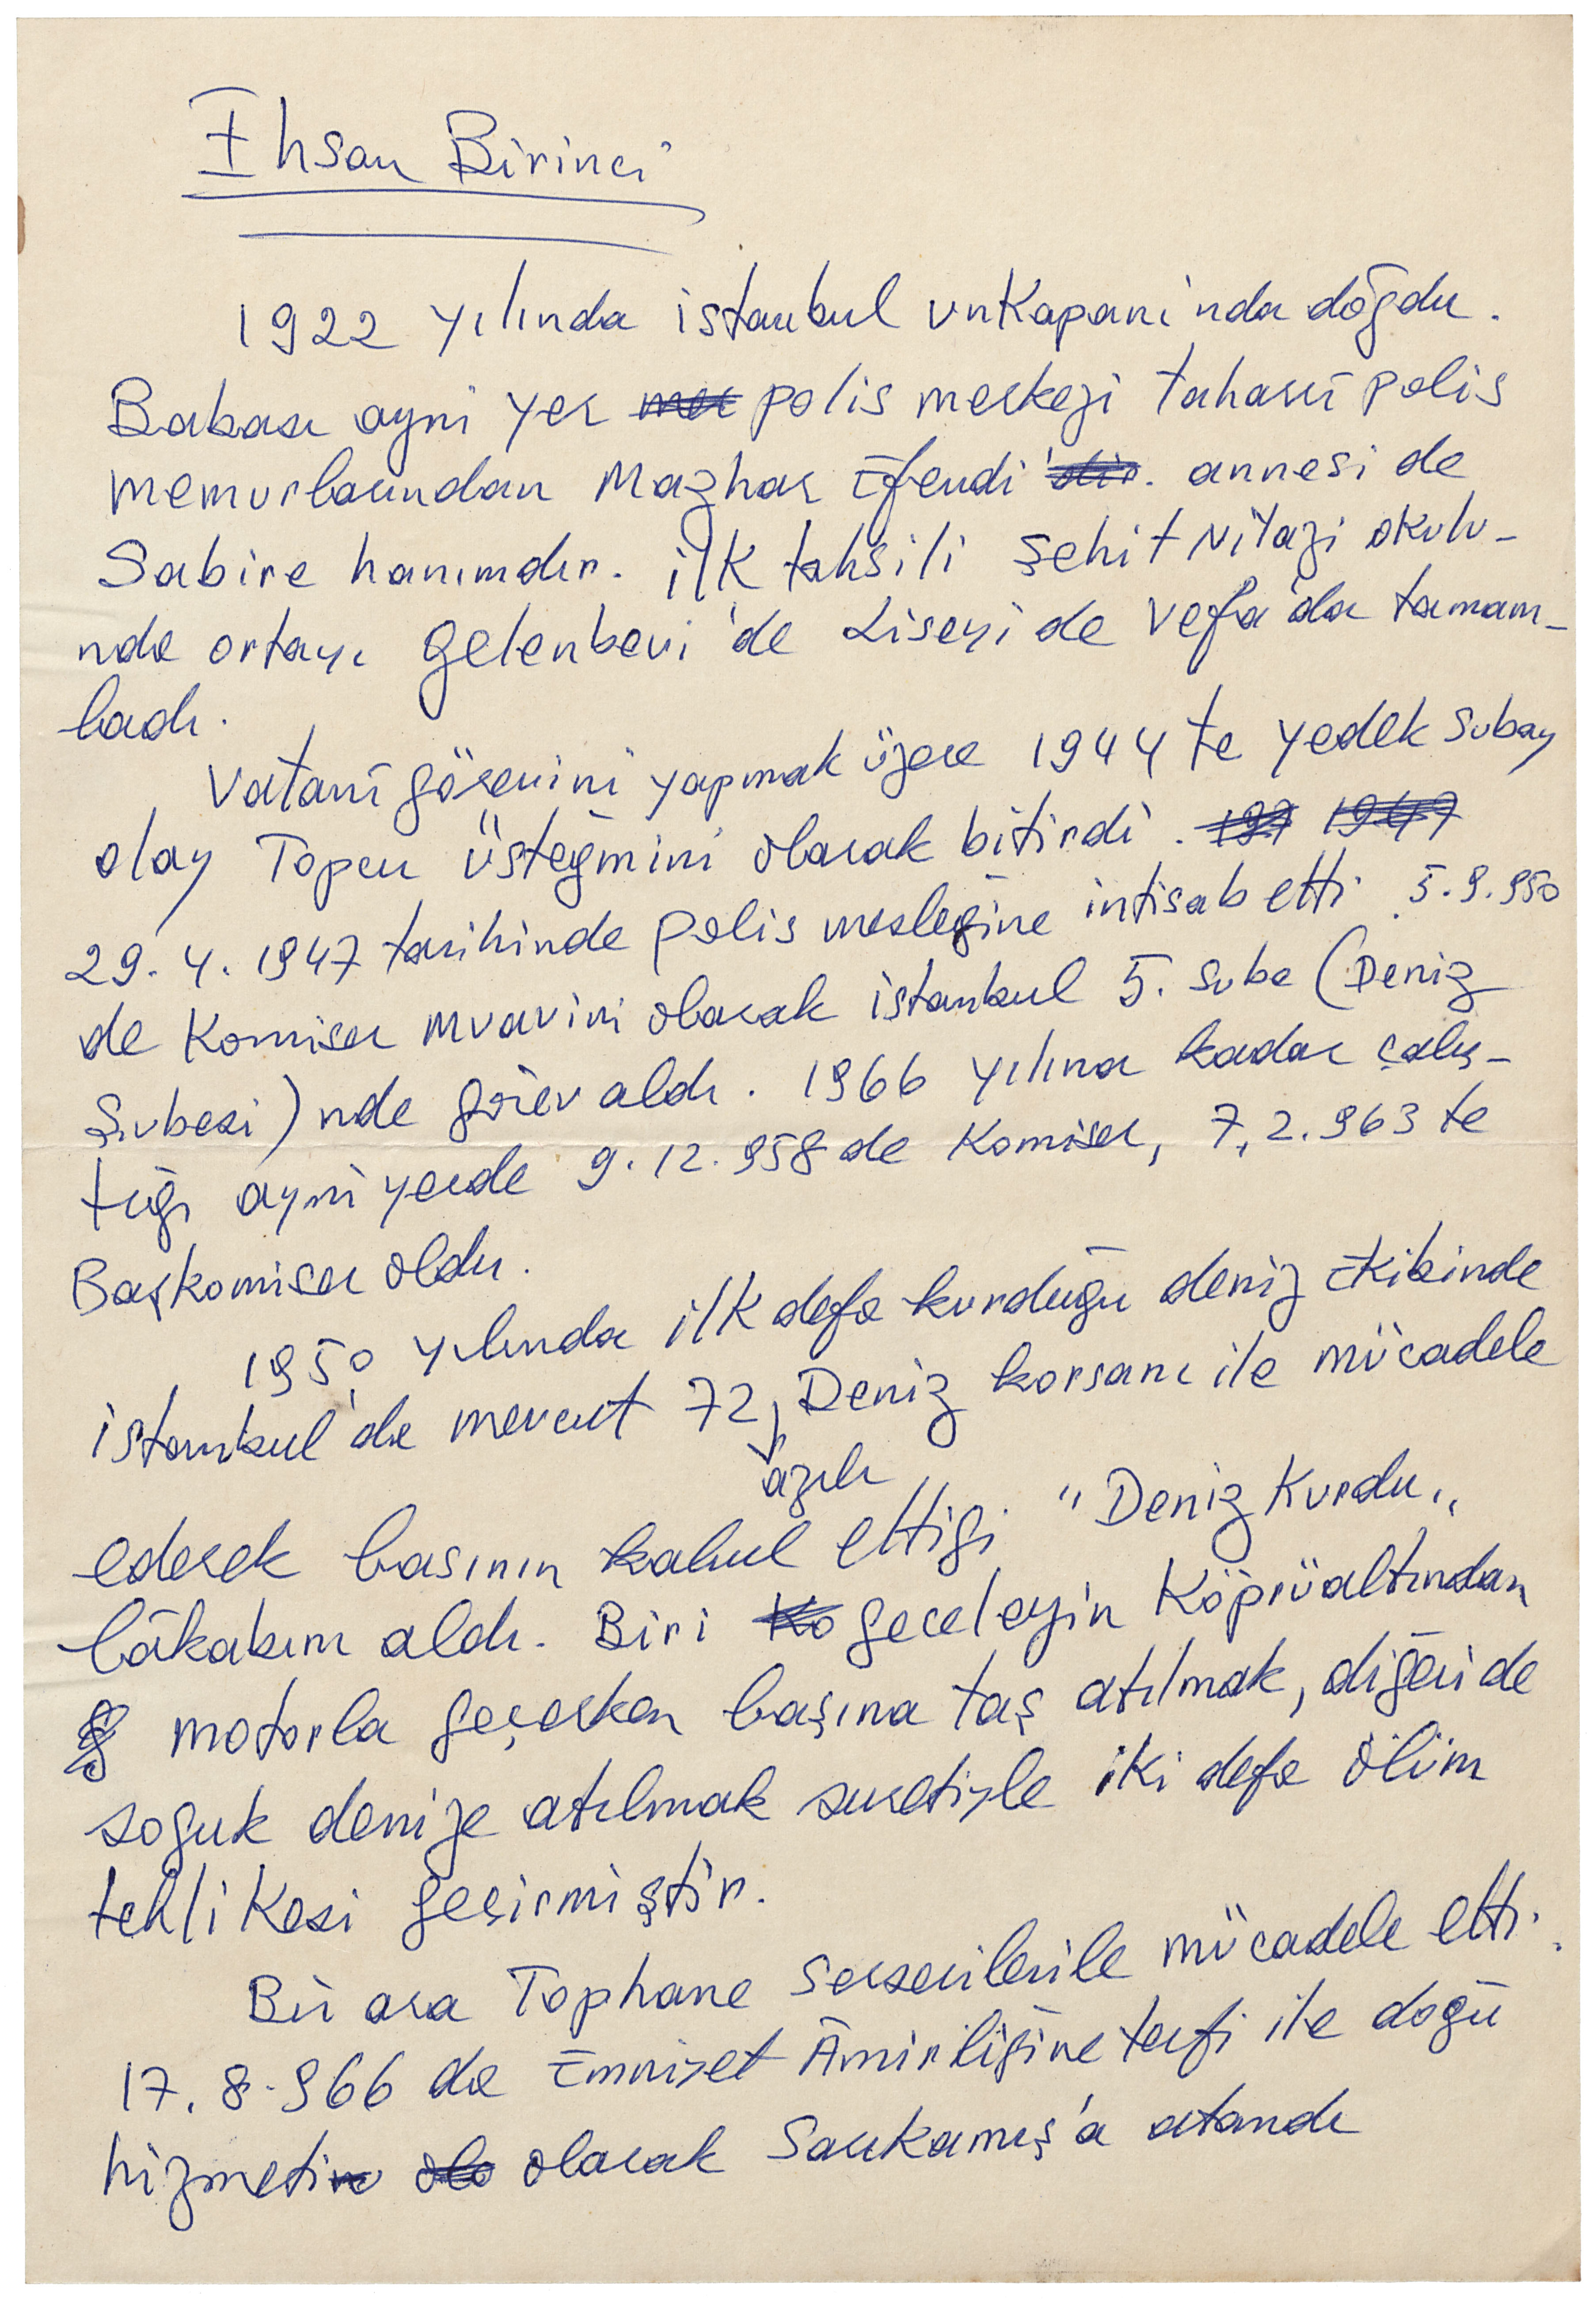 İhsan Birinci
1922 yılında istanbul Unkapanı'nda doğdu.
Babası ayni yer polis merkezi taharri polis
memurlarından Mazhar Efendi annesi de
Sabire hanımdır. ilk tahsili şehit Niyazi okulu-
nda ortayı Gelenbevi'de Liseyi de Vefa'da tamam-
ladı.
Vatani görevini yapmak üzere 1944 te yedek Subay
olay Topcu üsteğmini olarak bitirdi.
29.4.1947 tarihinde polis mesleğine intisab etti. 5.9.950
de Komiser muavini olarak istanbul 5. Şube (Deniz
Şubesi)nde görev aldı. 1966 yılına kadar çalış-
tığı ayni yerde 9.12.958 de Komiser, 7.2.963 te
Başkomiser oldu.
1950 yılında ilk defa kurduğu deniz Ekibinde
istanbul'da mevcut 72 azılı Deniz korsanı ile mücadele
ederek basının kabul ettiği "Deniz Kurdu"
lâkabını aldı. Biri geceleyin Köprüaltından
motorla geçerken başına taş atılmak, diğeri de
soğuk denize atılmak suretiyle iki defa ölüm
tehlikesi geçirmiştir.
Bir ara Tophane serserilerile mücadele etti.
17.8.966 da Emniyet Âmirliğine terfi ile doğu
hizmeti olarak Sarıkamış'a atandı